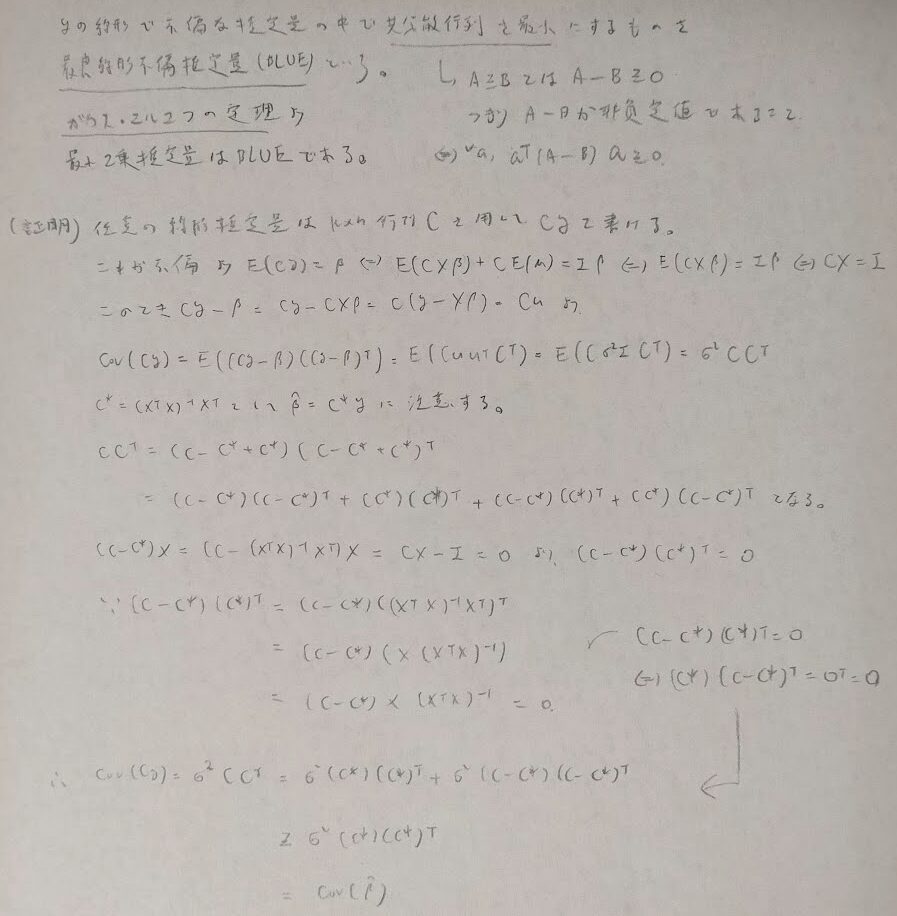 yの線形で不偏な推定量の中で共分散行列を最小にするものを
最良線形不偏推定量(BLUE)という。
↳ A≧BとはA-B≧0
ガウス・マルコフの定理より
つまりA-Bが非負定値であること
最小2乗推定量はBLUEである。
⇔ ∀a, aᵀ(A-B)a≧0.
(証明) 任意の線形推定量はk×n行列Cを用いてCyと書ける。
これが不偏よりE(Cy)=β ⇔ E(CXβ)+CE(u)=Iβ ⇔ E(CXβ)=Iβ ⇔ CX=I
このときCy-β = Cy-CXβ = C(y-Xβ) = Cu より
Cov(Cy) = E((Cy-β)(Cy-β)ᵀ) = E(CuuᵀCᵀ) = E(Cσ²ICᵀ) = σ²CCᵀ
C* = (XᵀX)⁻¹Xᵀとし、β̂ = C*yに注意する。
CCᵀ = (C-C*+C*)(C-C*+C*)ᵀ
= (C-C*)(C-C*)ᵀ + (C*)(C*)ᵀ + (C-C*)(C*)ᵀ + (C*)(C-C*)ᵀ となる。
(C-C*)X = (C-(XᵀX)⁻¹Xᵀ)X = CX-I = 0 より、(C-C*)(C*)ᵀ = 0
∵ (C-C*)(C*)ᵀ = (C-C*)((XᵀX)⁻¹Xᵀ)ᵀ
= (C-C*)(X(XᵀX)⁻¹)
(C-C*)(C*)ᵀ=0
⇔ (C*)(C-C*)ᵀ=0ᵀ=0
= (C-C*)X(XᵀX)⁻¹ = 0.
∴ Cov(Cy) = σ²CCᵀ = σ²(C*)(C*)ᵀ + σ²(C-C*)(C-C*)ᵀ
≧ σ²(C*)(C*)ᵀ
= Cov(β̂)